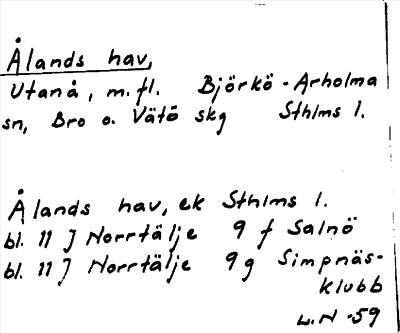 Ålands hav,
Utanå, m.fl. Björkö-Arholma
sn, Bro o. Vätö skg Sthlms l.
Ålands hav, ek Sthlms l.
bl. 11 J Norrtälje 9 f Salnö
bl. 11 J Norrtälje 9g Simpnäs-
klubb
L.N -59